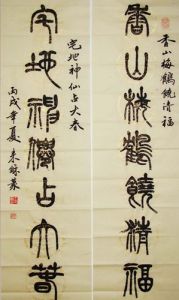 香山梅鶴饒清福
香山梅鶴饒清福
宅地神仙占大春
宅地神僊占大春
丙戌年夏